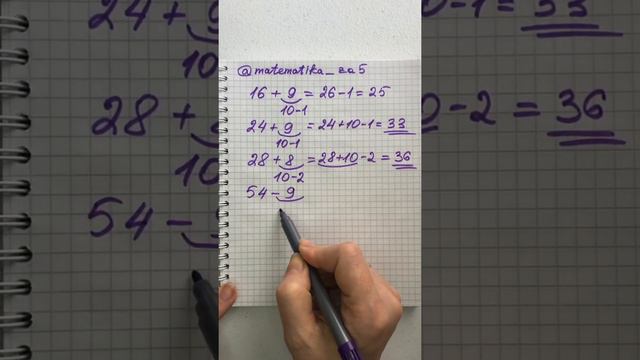 @matematika_za5
16 + 9 = 26 - 1 = 25
10-1
24 + 9 = 24 + 10 - 1 = 33
10-1
28 + 8 = 28 + 10 - 2 = 36
10-2
54 - 9